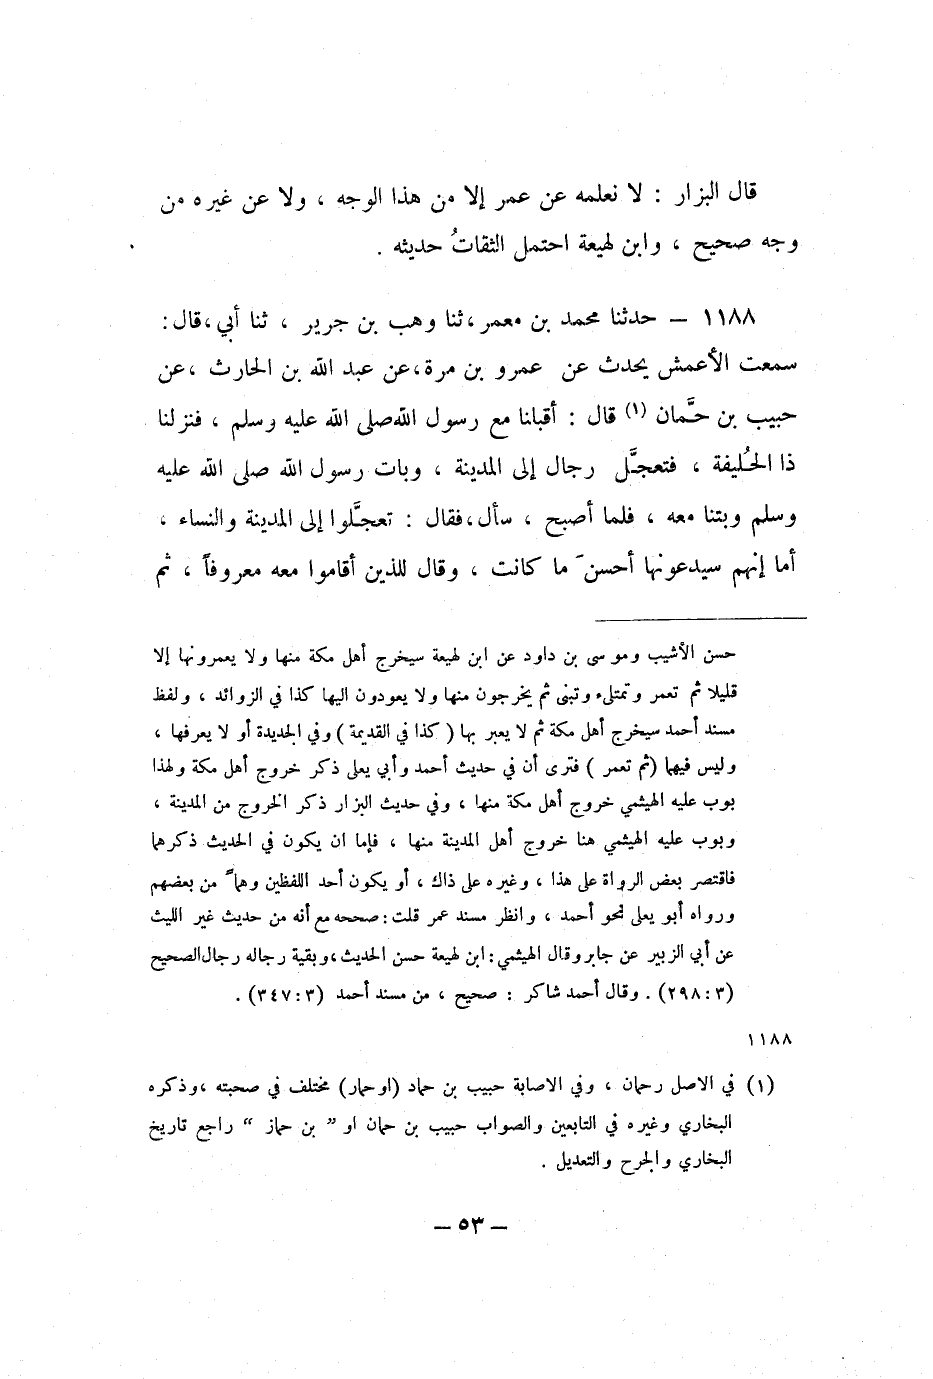 قال البزار : لا نعلمه عن عمر إلا من هذا الوجه ، ولا عن غيره من
وجه صحيح ، وابن لهيعة احتمل الثقاتُ حديثه .
١١٨٨ – حدثنا محمد بن معمر ، ثنا وهب بن جرير ، ثنا أبي ، قال :
سمعت الأعمش يحدث عن عمرو بن مرة ، عن عبد الله بن الحارث ، عن
حبيب بن حمَّان (١) قال : أقبلنا مع رسول الله صلى الله عليه وسلم ، فنزلنا
ذا الحُليفة ، فتعجَّل رجال إلى المدينة ، وبات رسول الله صلى الله عليه
وسلم وبتنا معه ، فلما أصبح ، سأل ، فقال : تعجَّلوا إلى المدينة والنساء ،
أما إنهم سيدعونها أحسنَ ما كانت ، وقال للذين أقاموا معه معروفاً ، ثم
حسن الأشيب وموسى بن داود عن ابن لهيعة سيخرج أهل مكة منها ولا يعمرونها إلا
قليلا ثم تعمر وتمتلىء وتبنى ثم يخرجون منها ولا يعودون اليها كذا في الزوائد ، ولفظ
مسند أحمد سيخرج أهل مكة ثم لا يعبر بها ( كذا في القديمة ) وفي الجديدة أو لا يعرفها ،
وليس فيها (ثم تعمر ) فترى أن في حديث أحمد وأبي يعلى ذكر خروج أهل مكة ولهذا
بوب عليه الهيثمي خروج أهل مكة منها ، وفي حديث البزار ذكر الخروج من المدينة ،
وبوب عليه الهيثمي هنا خروج أهل المدينة منها ، فإما ان يكون في الحديث ذكرهما
فاقتصر بعض الرواة على هذا ، وغيره على ذاك ، أو يكون أحد اللفظين وهماً من بعضهم
ورواه أبو يعلى نحو أحمد ، وانظر مسند عمر قلت : صححه مع أنه من حديث غير الليث
عن أبي الزبير عن جابر وقال الهيثمي : ابن لهيعة حسن الحديث ، وبقية رجاله رجال الصحيح
(٣ : ٢٩٨) . وقال أحمد شاكر : صحيح ، من مسند أحمد (٣ : ٣٤٧) .
١١٨٨
(١) في الاصل رحمان ، وفي الاصابة حبيب بن حماد (او حمار) مختلف في صحبته ، وذكره
البخاري وغيره في التابعين والصواب حبيب بن حمان او ” بن حماز “ راجع تاريخ
البخاري والجرح والتعديل .
– ٥٣ –